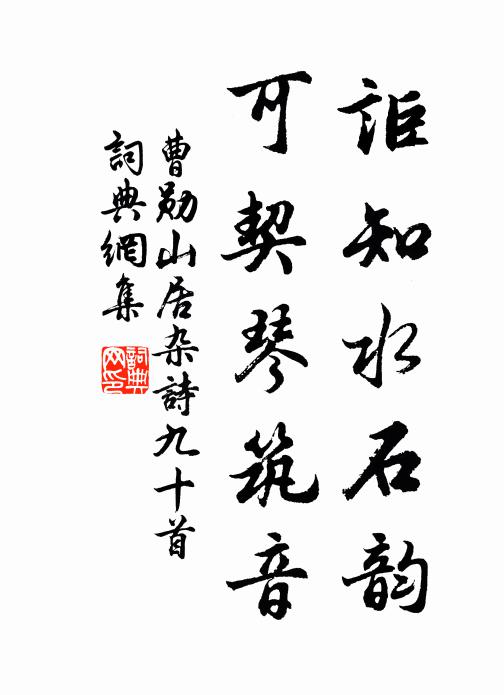 詎知水石韵
可契琴筑音
曹勋山居杂詩九十首
詞典網集
詞典网印